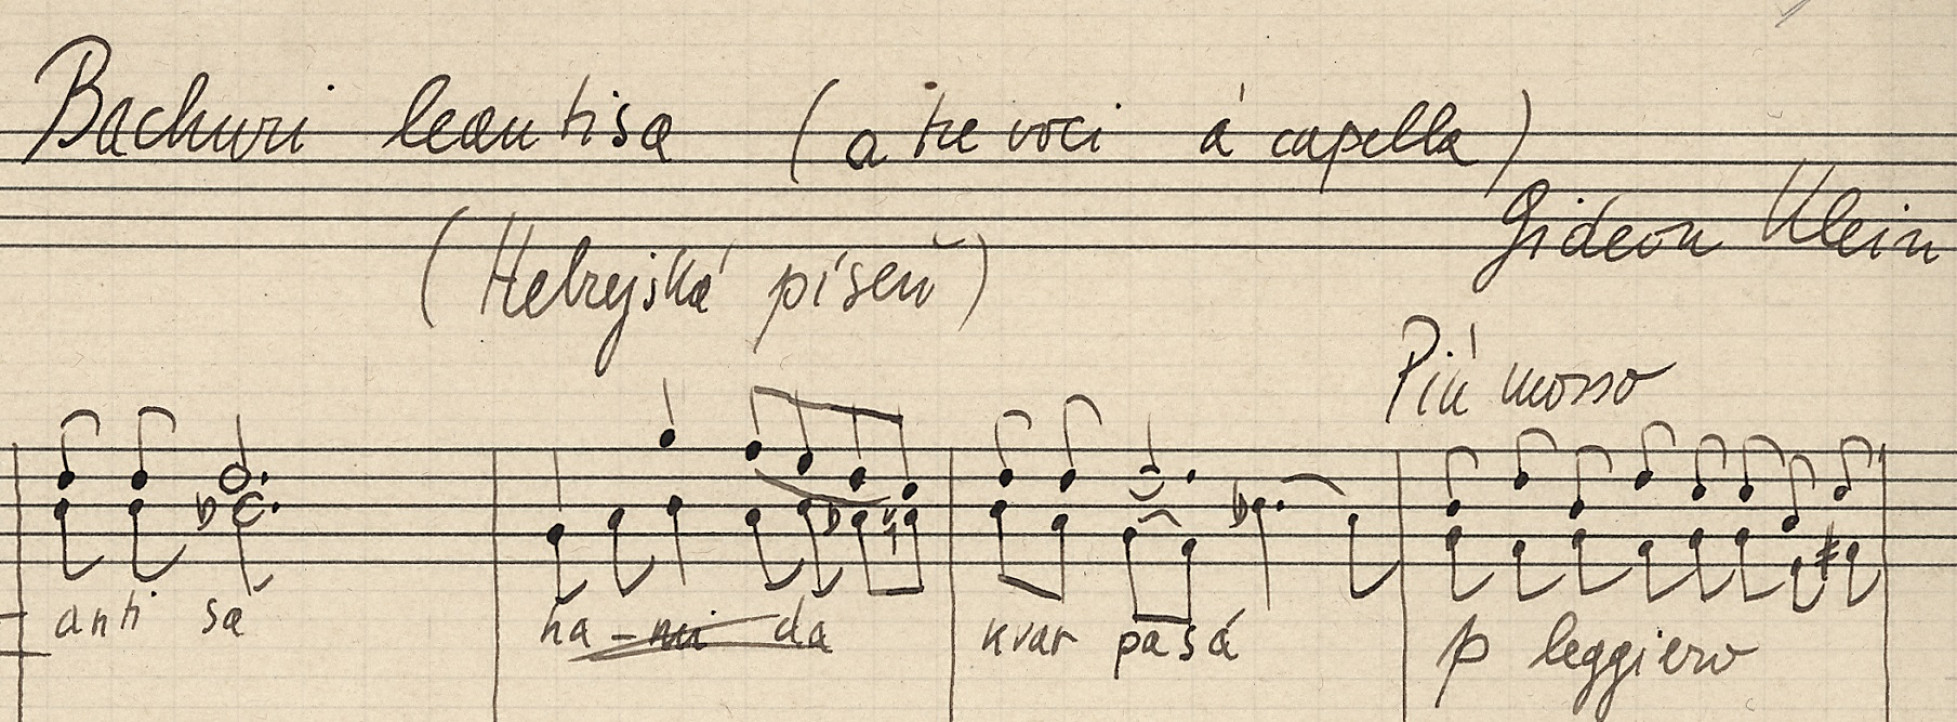 Bachuri leantisa (a tre voci á capella)
Gideon Klein
(Hebrejská píseň)
Più mosso
anti sa na - nu da kvar pasá p leggiero